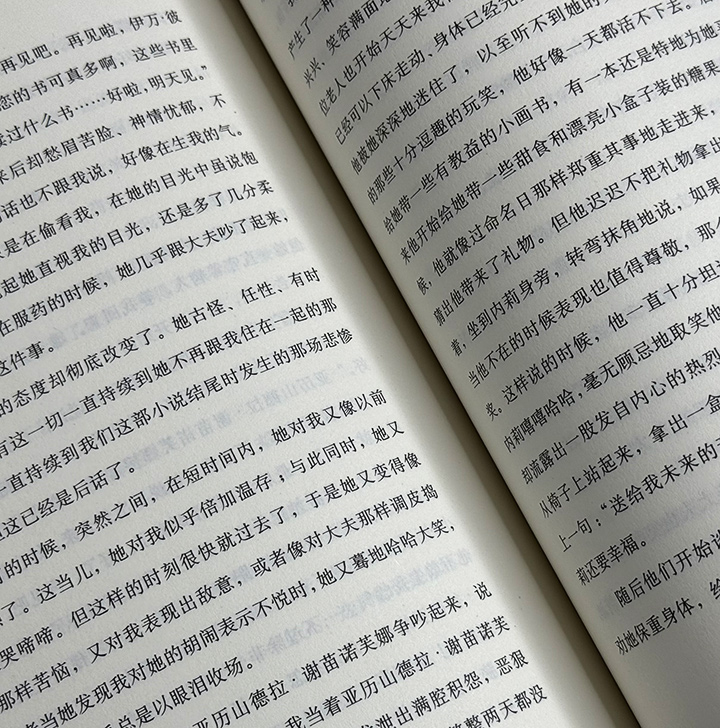 再见吧。再见啦，伊万·彼
您的书可真多啊，这些书里
读过什么书……好啦，明天见。”
来后却愁眉苦脸、神情忧郁，不
句话也不跟我说，好像在生我的气。
是在偷看我，在她的目光中虽说饱
起她直视我的目光，还是多了几分柔
在服药的时候，她几乎跟大夫吵了起来，
这件事。
的态度却彻底改变了。她古怪、任性、有时
有这一切一直持续到她不再跟我住在一起的那
一直持续到我们这部小说结尾时发生的那场悲惨
这已经是后话了。
的时候，突然之间，在短时间内，她对我又像以前
了。这当儿，她对我似乎倍加温存；与此同时，她又
哭啼啼。但这样的时刻很快就过去了，于是她又变得像
那样苦恼，又对我表现出敌意，或者像对大夫那样调皮捣
当她发现我对她的胡闹表示不悦时，她又蓦地哈哈大笑，
总是以眼泪收场。
亚历山德拉·谢苗诺芙娜争吵起来，说
我当着亚历山德拉·谢苗诺芙
泄出满腔积怨，恶狠
整整两天都没
产生了一种
兴兴、笑容满面地
位老人也开始天天来我
已经可以下床走动、身体已经完
他被她深深地迷住了，以至听不到她的
的那些十分逗趣的玩笑，他好像一天都活不下去。
给她带一些有教益的小画书，有一本还是特地为她
来他开始给她带一些甜食和漂亮小盒子装的糖果
候，他就像过命名日那样郑重其事地走进来，
猜出他带来了礼物。但他迟迟不把礼物拿出
着，坐到内莉身旁，转弯抹角地说，如果
当他不在的时候表现也值得尊敬，那么
奖。这样说的时候，他一直十分坦
内莉嘻嘻哈哈，毫无顾忌地取笑他
却流露出一股发自内心的热烈
从椅子上站起来，拿出一盒
上一句：“送给我未来的
莉还要幸福。
随后他们开始谈
劝她保重身体，给